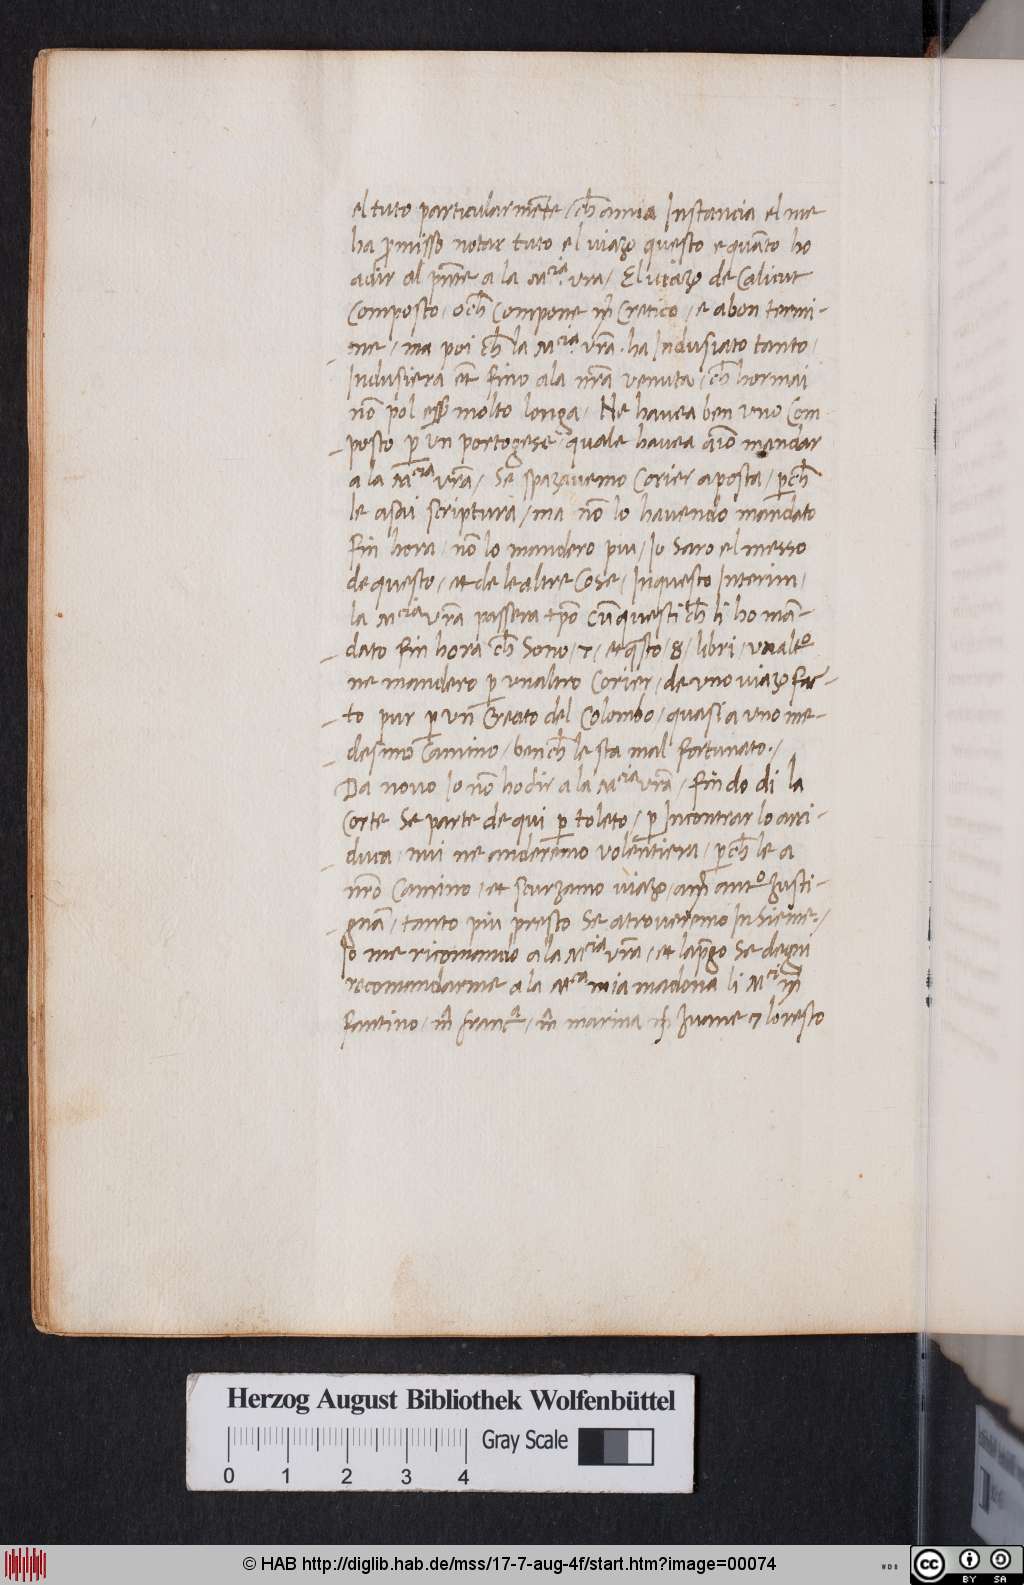 el tuto particularmẽte / ch̃ amia Instancia el me
ha p̃misso notar tuto el viazo questo e quãto ho
adir al pñte a la M.cia vr̃a / El viazo de Calicut
Composto / och̃ Compone m̃ Cretico / e abon termi-
ne / ma poi ch̃ la M.cia vr̃a . ha Indusiato tanto /
Indusiera et̃ fino ala nr̃a venuta / ch̃ hormai
nõ pol ess̃ molto longa / Ne havea ben vno Com
posto p̱ vn portogese / quale havea aĩo mandar
a la M.cia vr̃a / Se spazavemo Corier aposta / p̱ch̃
le asai scriptura / ma nõ lo havendo mandato
fin hora / nõ lo mandero piu / Io saro el messo
de questo / et de le altre Cose / Inquesto Interim /
la M.cia vr̃a passera tp̃o cũ questi ch̃ li ho mã-
dato fin hora ch̃ sono / 7 / et q̃sto / 8 / libri / vn alto
ne mandero p̱ vnaltro Corier / de vno viazo fat-
to pur p̱ vn Creato del Colombo / quasi a vno me-
desmo Camino / bench̃ le sta mal fortunato . /
Da novo Io nõ ho dir a la M.cia vr̃a / fin do di la
Corte se parte de qui p̱ toleto / p̱ Incontrar lo arci-
duca / nui ne anderemo volentiera / p̱ch̃ le a
nr̃o Camino / et scurzamo viazo / a m̃ antº Zusti-
gnã / tanto piu presto se atroveremo Insieme . /
Io me ricomando a la M.cia vr̃a / et la p̃go se degni
recomandarme a la M.ca mia madona li M.ci m̃
fantino / m̃ franc.º / m̃ marina m̃ Zuane 7 lo resto
Herzog August Bibliothek Wolfenbüttel
Gray Scale
0 1 2 3 4
© HAB http://diglib.hab.de/mss/17-7-aug-4f/start.htm?image=00074
WDB
CC BY SA